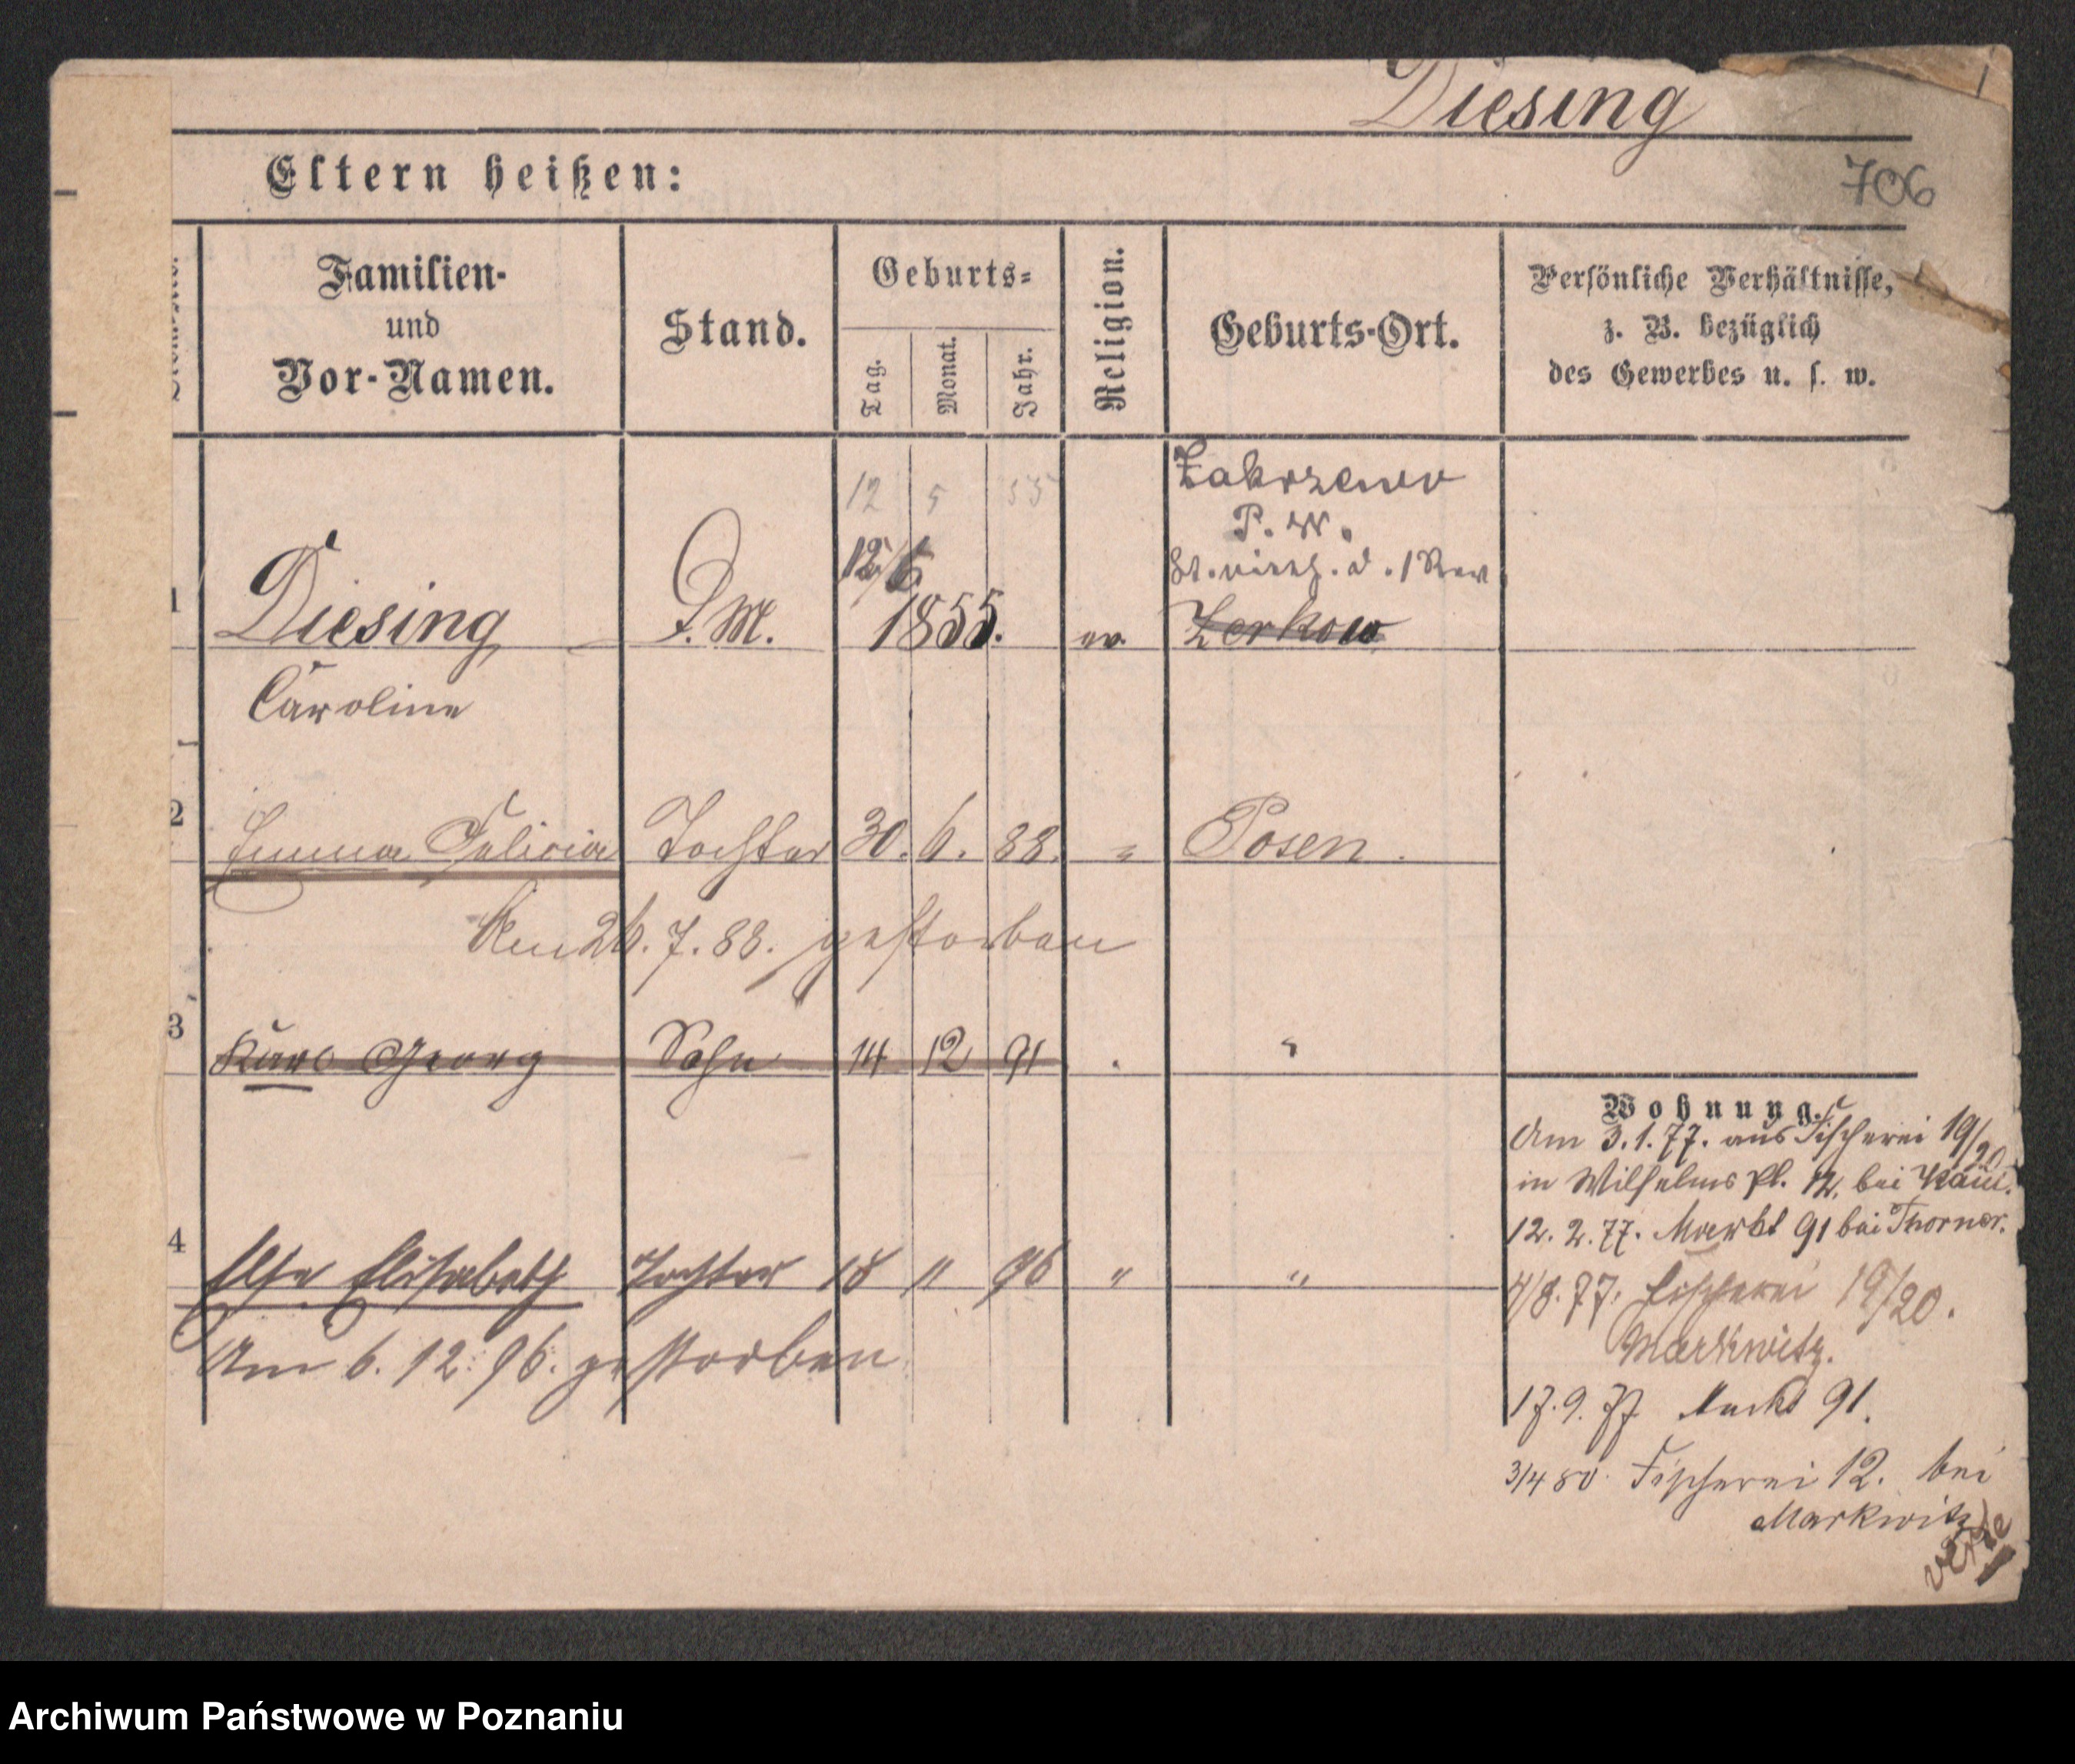 Diesing
706
Eltern heißen:
Familien-
und
Vor-Namen.
Stand.
Geburts-
Tag.
Monat.
Jahr.
Religion.
Geburts-Ort.
Persönliche Verhältnisse,
z. B. bezüglich
des Gewerbes u. s. w.
12 5 55
Zakrzewo
P. W.
12/5
1 Diesing D. M. 1855. ev. Zerkow
Caroline
2 Emma Felicia Tochter 30. 6. 88. " Posen.
Am 26. 7. 88. gestorben
3 Karl Georg Sohn 14 12 91 "
4 Else Elisabeth Tochter 18 11 96 " "
Am 6. 12. 96. gestorben
Wohnung.
Am 3. 1. 77. aus Fischerei 19/20
in Wilhelms Pl. 12. bei
12. 2. 77. Markt 91 bei Thorner.
4/8. 77. Fischerei 19/20.
Markwitz.
17. 9. 77 Markt 91.
3/4 80. Fischerei 12. bei
Markwitz
verte
Archiwum Państwowe w Poznaniu